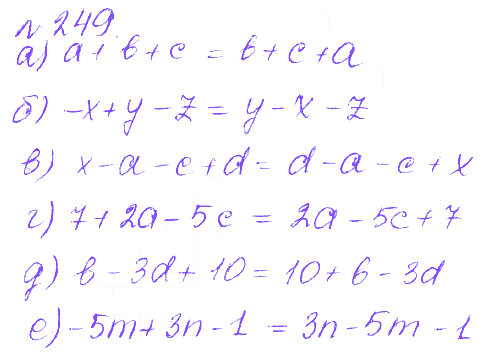 № 249.
а) a + b + c = b + c + a
б) -x + y - z = y - x - z
в) x - a - c + d = d - a - c + x
г) 7 + 2a - 5c = 2a - 5c + 7
д) b - 3d + 10 = 10 + b - 3d
е) -5m + 3n - 1 = 3n - 5m - 1